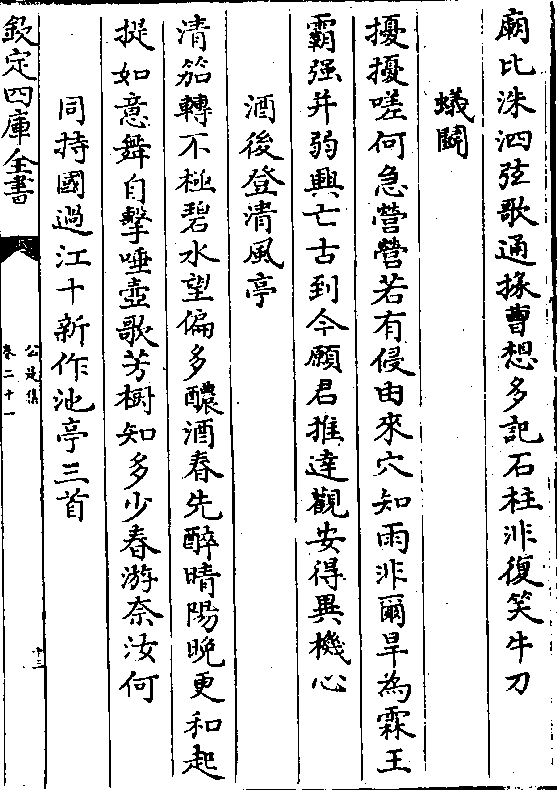 廟比洙泗弦歌通掾曹想多記石柱非復笑牛刀
蟻鬭
擾擾嗟何急營營若有侵由來穴知雨非爾旱為霖王
霸强并弱興亡古到今願君推達觀安得異機心
酒後登清風亭
清笳轉不極碧水望偏多醲酒春先醉晴陽晩更和起
捉如意舞自擊唾壺歌芳樹知多少春游奈汝何
同持國過江十新作池亭三首
欽定四庫全書
公是集
卷二十一
十三